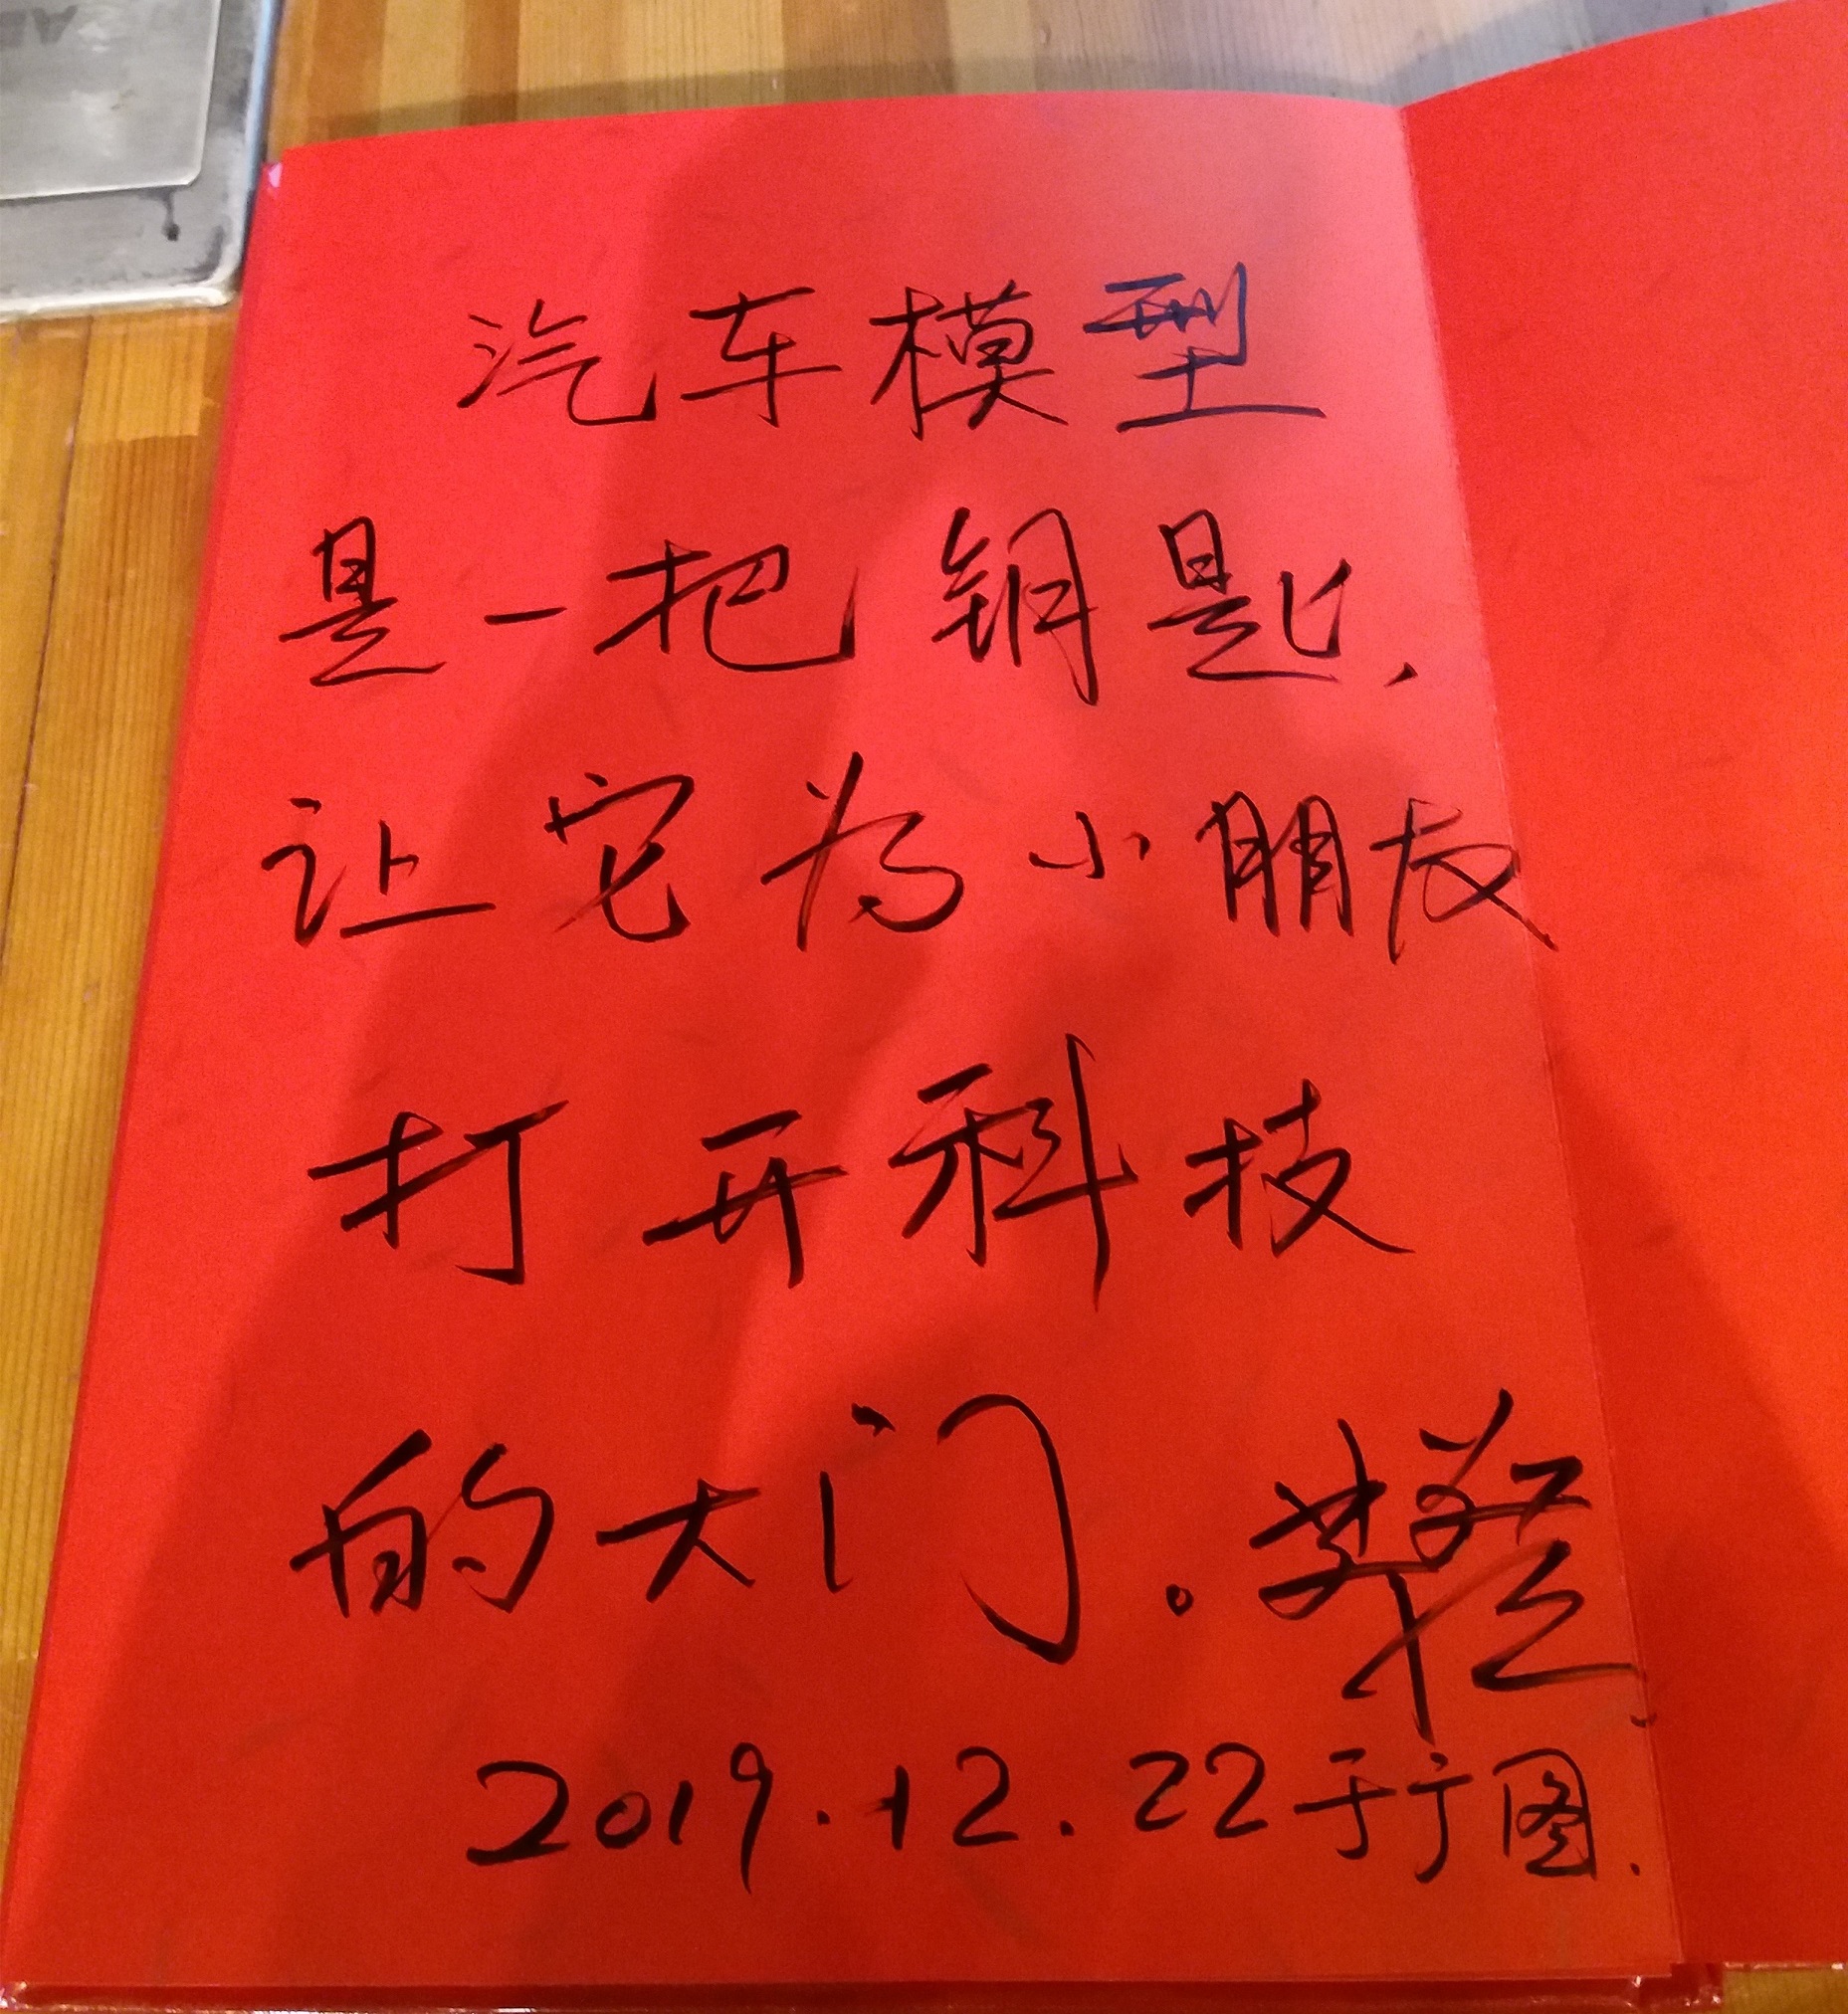 汽车模型
是一把钥匙,
让它为小朋友
打开科技
的大门。
2019.12.22于广图.